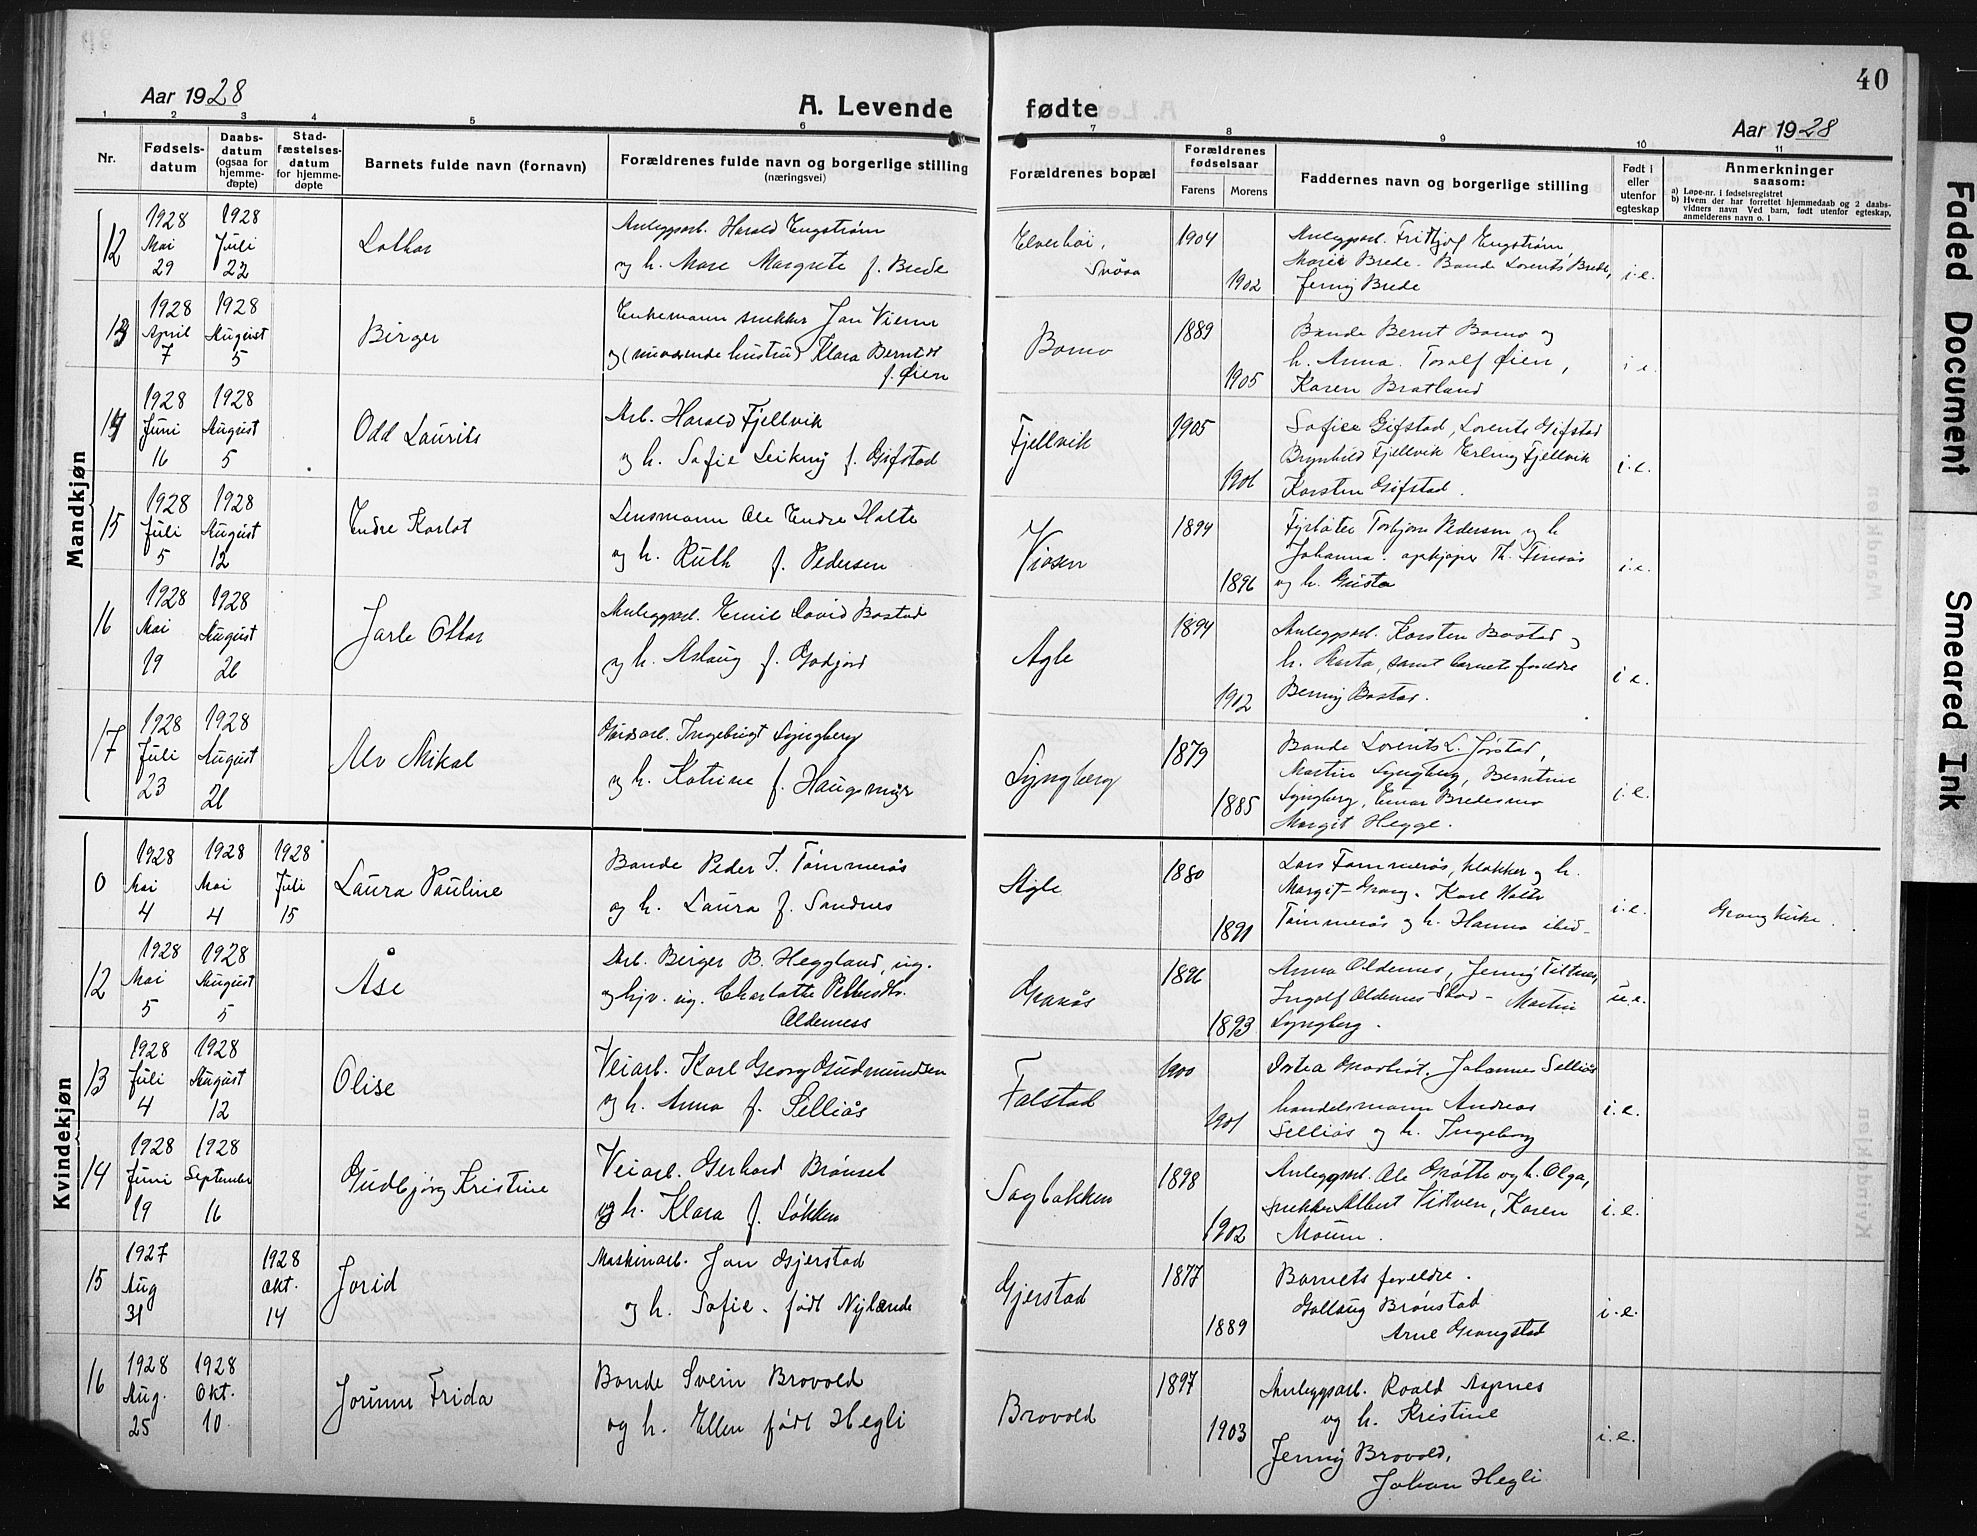 40
Aar 1928
A. Levende fødte
Aar 1928
1 2 3 4 5 6 7 8 9 10 11
Nr.
Fødsels-
datum
Daabs-
datum
(ogsaa for
hjemme-
døpte)
Stad-
fæstelses-
datum
for hjemme-
døpte
Barnets fulde navn (fornavn)
Forældrenes fulde navn og borgerlige stilling
(næringsvei)
Forældrenes bopæl
Forældrenes
fødselsaar
Farens Morens
Faddernes navn og borgerlige stilling
Født i
eller
utenfor
egteskap
Anmerkninger
saasom:
a) Løpe-nr. i fødselsregistret
b) Hvem der har forrettet hjemmedaab og 2 daabs-
vidners navn Ved barn, født utenfor egteskap,
anmelderens navn o. l
Mandkjøn
12
1928 Mai 29
1928 Juli 22
Lothar
Anleggsarb. Harald Engstrøm
og h. Mare Margrete f. Brede
Elverhøi, Snåsa
1904
1902
Anleggsarb. Fritjof Engstrøm,
Marie Brede. Bonde Lorents Brede,
Jenny Brede
i.e.
13
1928 April 7
1928 August 5
Birger
Enkemann snekker Jon Viem
og (nuværende hustru) Klara Berntdt
f. Øien
Bomo
1889
1905
Bonde Bernt Bomo og
h. Anna. Toralf Øien,
Karen Bratland
i e.
14
1928 Juni 16
1928 August 5
Odd Laurits
Arb. Harald Fjellvik
og h. Sofie f. Gifstad
Fjellvik
1905
1906
Sofie Gifstad, Lorents Gifstad
Brynhild Fjellvik Erling Fjellvik
Karsten Gifstad.
i.e.
15
1928 Juli 5
1928 August 12
Endre Karlot
Lensmann Ole Endre Holte
og h. Ruth f. Pedersen
Viosen
1894
1896
Fyrbøter Torbjørn Pedersen og h
Johanna. opkjøper Th. Finsås
og h. Gusta
i.e.
16
1928 Mai 19
1928 August 26
Jarle Ottar
Anleggsarb. Emil David Bostad
og h. Aslaug f. Godjord
Agle
1894
1902
Anleggsarb. Karsten Bostad og
h. Marta, samt barnets foreldre
Benny Bostad.
i e.
17
1928 Juli 23
1928 August 26
Alv Mikal
Gårdsarb. Ingebrigt Lyngberg
og h. Katrine f. Haugsmyr
Lyngberg
1879
1885
Bonde Lorents L. Jørstad,
Martin Lyngberg, Berntine
Lyngberg, Einar Bredesmo
Margit Hegge.
i.e.
Kvindekjøn
0
1928 Mai 4
1928 Mai 4
1928 Juli 15
Laura Pauline
Bonde Peder J. Tømmerås
og h. Laura f. Sandnes
Agle
1880
1891
Lars Tømmerås, klokker og h.
Margit - Grong. Karl
Tømmerås og h. Hanna ibid -
i.e.
Grong kirke.
12
1928 Mai 5
1928 August 5
Åse
Arb. Birger B. Heggland, ug.
og hjv. ug. Charlotte
Olderness
Granås
1896
1893
Anna Oldernes, Jenny Titnes,
Ingolf Oldernes - Martin
Lyngberg.
u.e.
13
1928 Juli 4
1928 August 12
Olise
Veiarb. Karl Georg Gudmundsen
og h. Anna f. Selliås
Falstad
1900
1901
Johannes Selliås
handelsmann Andreas
Selliås og h. Ingeborg
i.e.
14
1928 Juni 19
1928 September 16
Gudbjørg Kristine
Veiarb. Gerhard Brønset
og h. Klara f. Løkken
Sagbakken
1898
1902
Anleggsarb. Ole Grøtte og h. Olga,
snekker Albert Vistven, Karen
Moum.
i.e.
15
1927 Aug 31
1928 Okt. 14
Jorid
Maskinarb. Jon Gjerstad
og h. Sofie. født Nylænde
Gjerstad
1877
1889
Barnets foreldre.
Gollaug Brønstad
Arne Grongstad
i.e.
16
1928 Aug. 25
1928 Okt. 10
Jorunn Frida
Bonde Svein Brovold
og h. Ellen født Hegli
Brovold
1897
1903
Anleggsarb. Roald Aspnes
og h. Kristine
Jenny Brovold,
Johan Hegli
i.e.
Faded Document
Smeared Ink